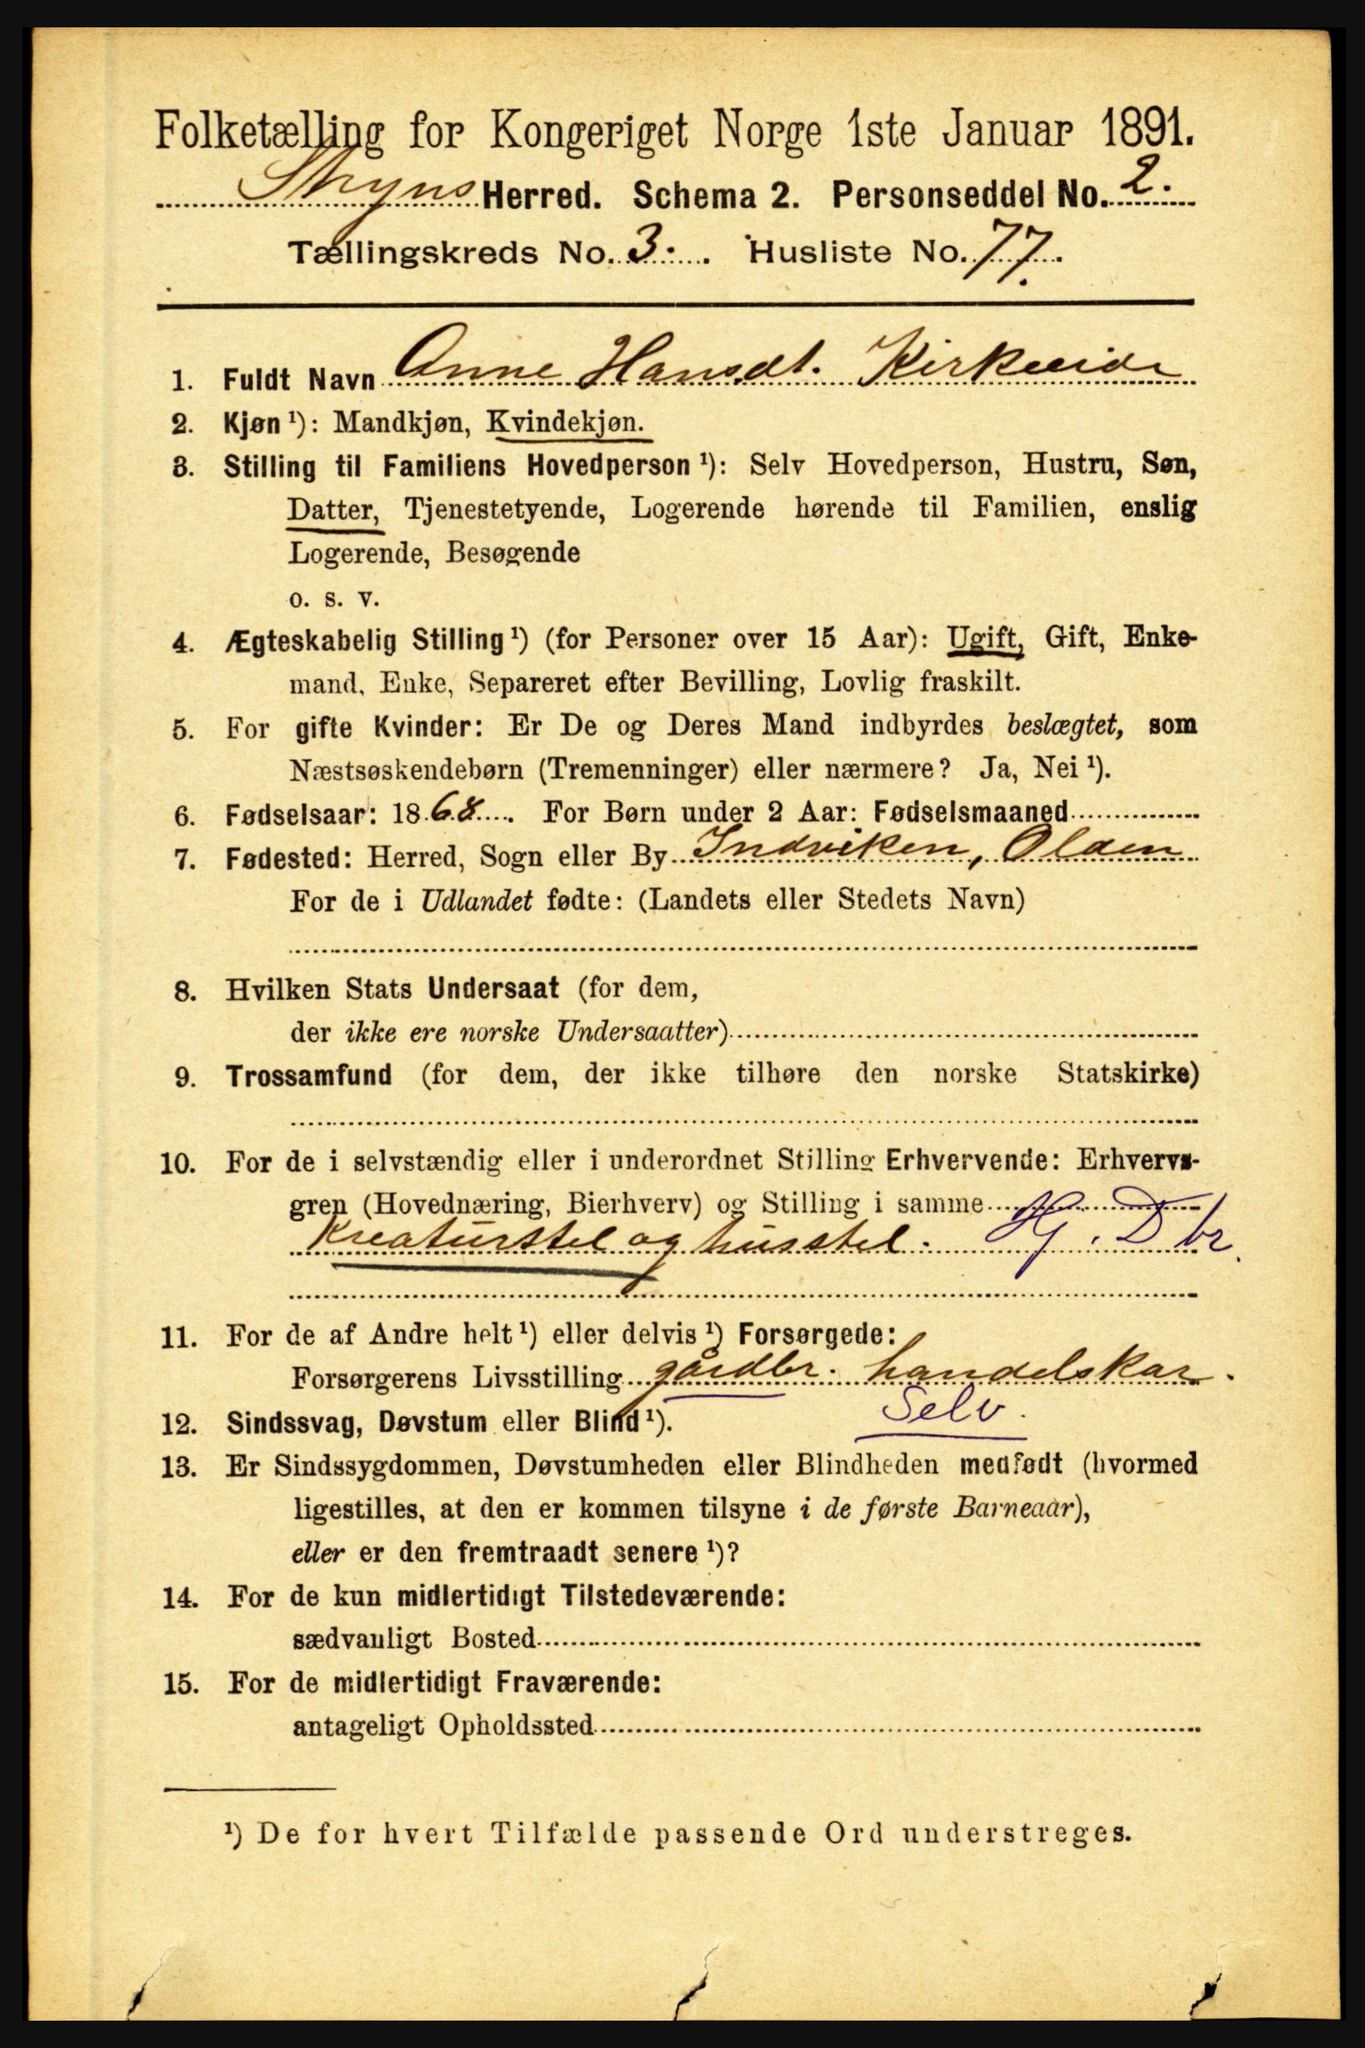 Folketælling for Kongeriget Norge 1ste Januar 1891.
Stryns Herred. Schema 2. Personseddel No. 2.
Tællingskreds No. 3. Husliste No. 77.
1. Fuldt Navn Anne Hansdt. Kirkeeide
2. Kjøn ¹): Mandkjøn, Kvindekjøn.
3. Stilling til Familiens Hovedperson ¹): Selv Hovedperson, Hustru, Søn,
Datter, Tjenestetyende, Logerende hørende til Familien, enslig
Logerende, Besøgende
o. s. v.
4. Ægteskabelig Stilling ¹) (for Personer over 15 Aar): Ugift, Gift, Enke-
mand, Enke, Separeret efter Bevilling, Lovlig fraskilt.
5. For gifte Kvinder: Er De og Deres Mand indbyrdes beslægtet, som
Næstsøskendebørn (Tremenninger) eller nærmere? Ja, Nei ¹).
6. Fødselsaar: 1868. For Børn under 2 Aar: Fødselsmaaned
7. Fødested: Herred, Sogn eller By Indviken, Olden
For de i Udlandet fødte: (Landets eller Stedets Navn)
8. Hvilken Stats Undersaat (for dem,
der ikke ere norske Undersaatter)
9. Trossamfund (for dem, der ikke tilhøre den norske Statskirke)
10. For de i selvstændig eller i underordnet Stilling Erhvervende: Erhvervs-
gren (Hovednæring, Bierhverv) og Stilling i samme
Kreaturstel og husstel. Hj. D br.
11. For de af Andre helt ¹) eller delvis ¹) Forsørgede:
Forsørgerens Livsstilling gårdbr. handelskar.
Selv.
12. Sindssvag, Døvstum eller Blind ¹).
13. Er Sindssygdommen, Døvstumheden eller Blindheden medfødt (hvormed
ligestilles, at den er kommen tilsyne i de første Barneaar),
eller er den fremtraadt senere ¹)?
14. For de kun midlertidigt Tilstedeværende:
sædvanligt Bosted
15. For de midlertidigt Fraværende:
antageligt Opholdssted
¹) De for hvert Tilfælde passende Ord understreges.